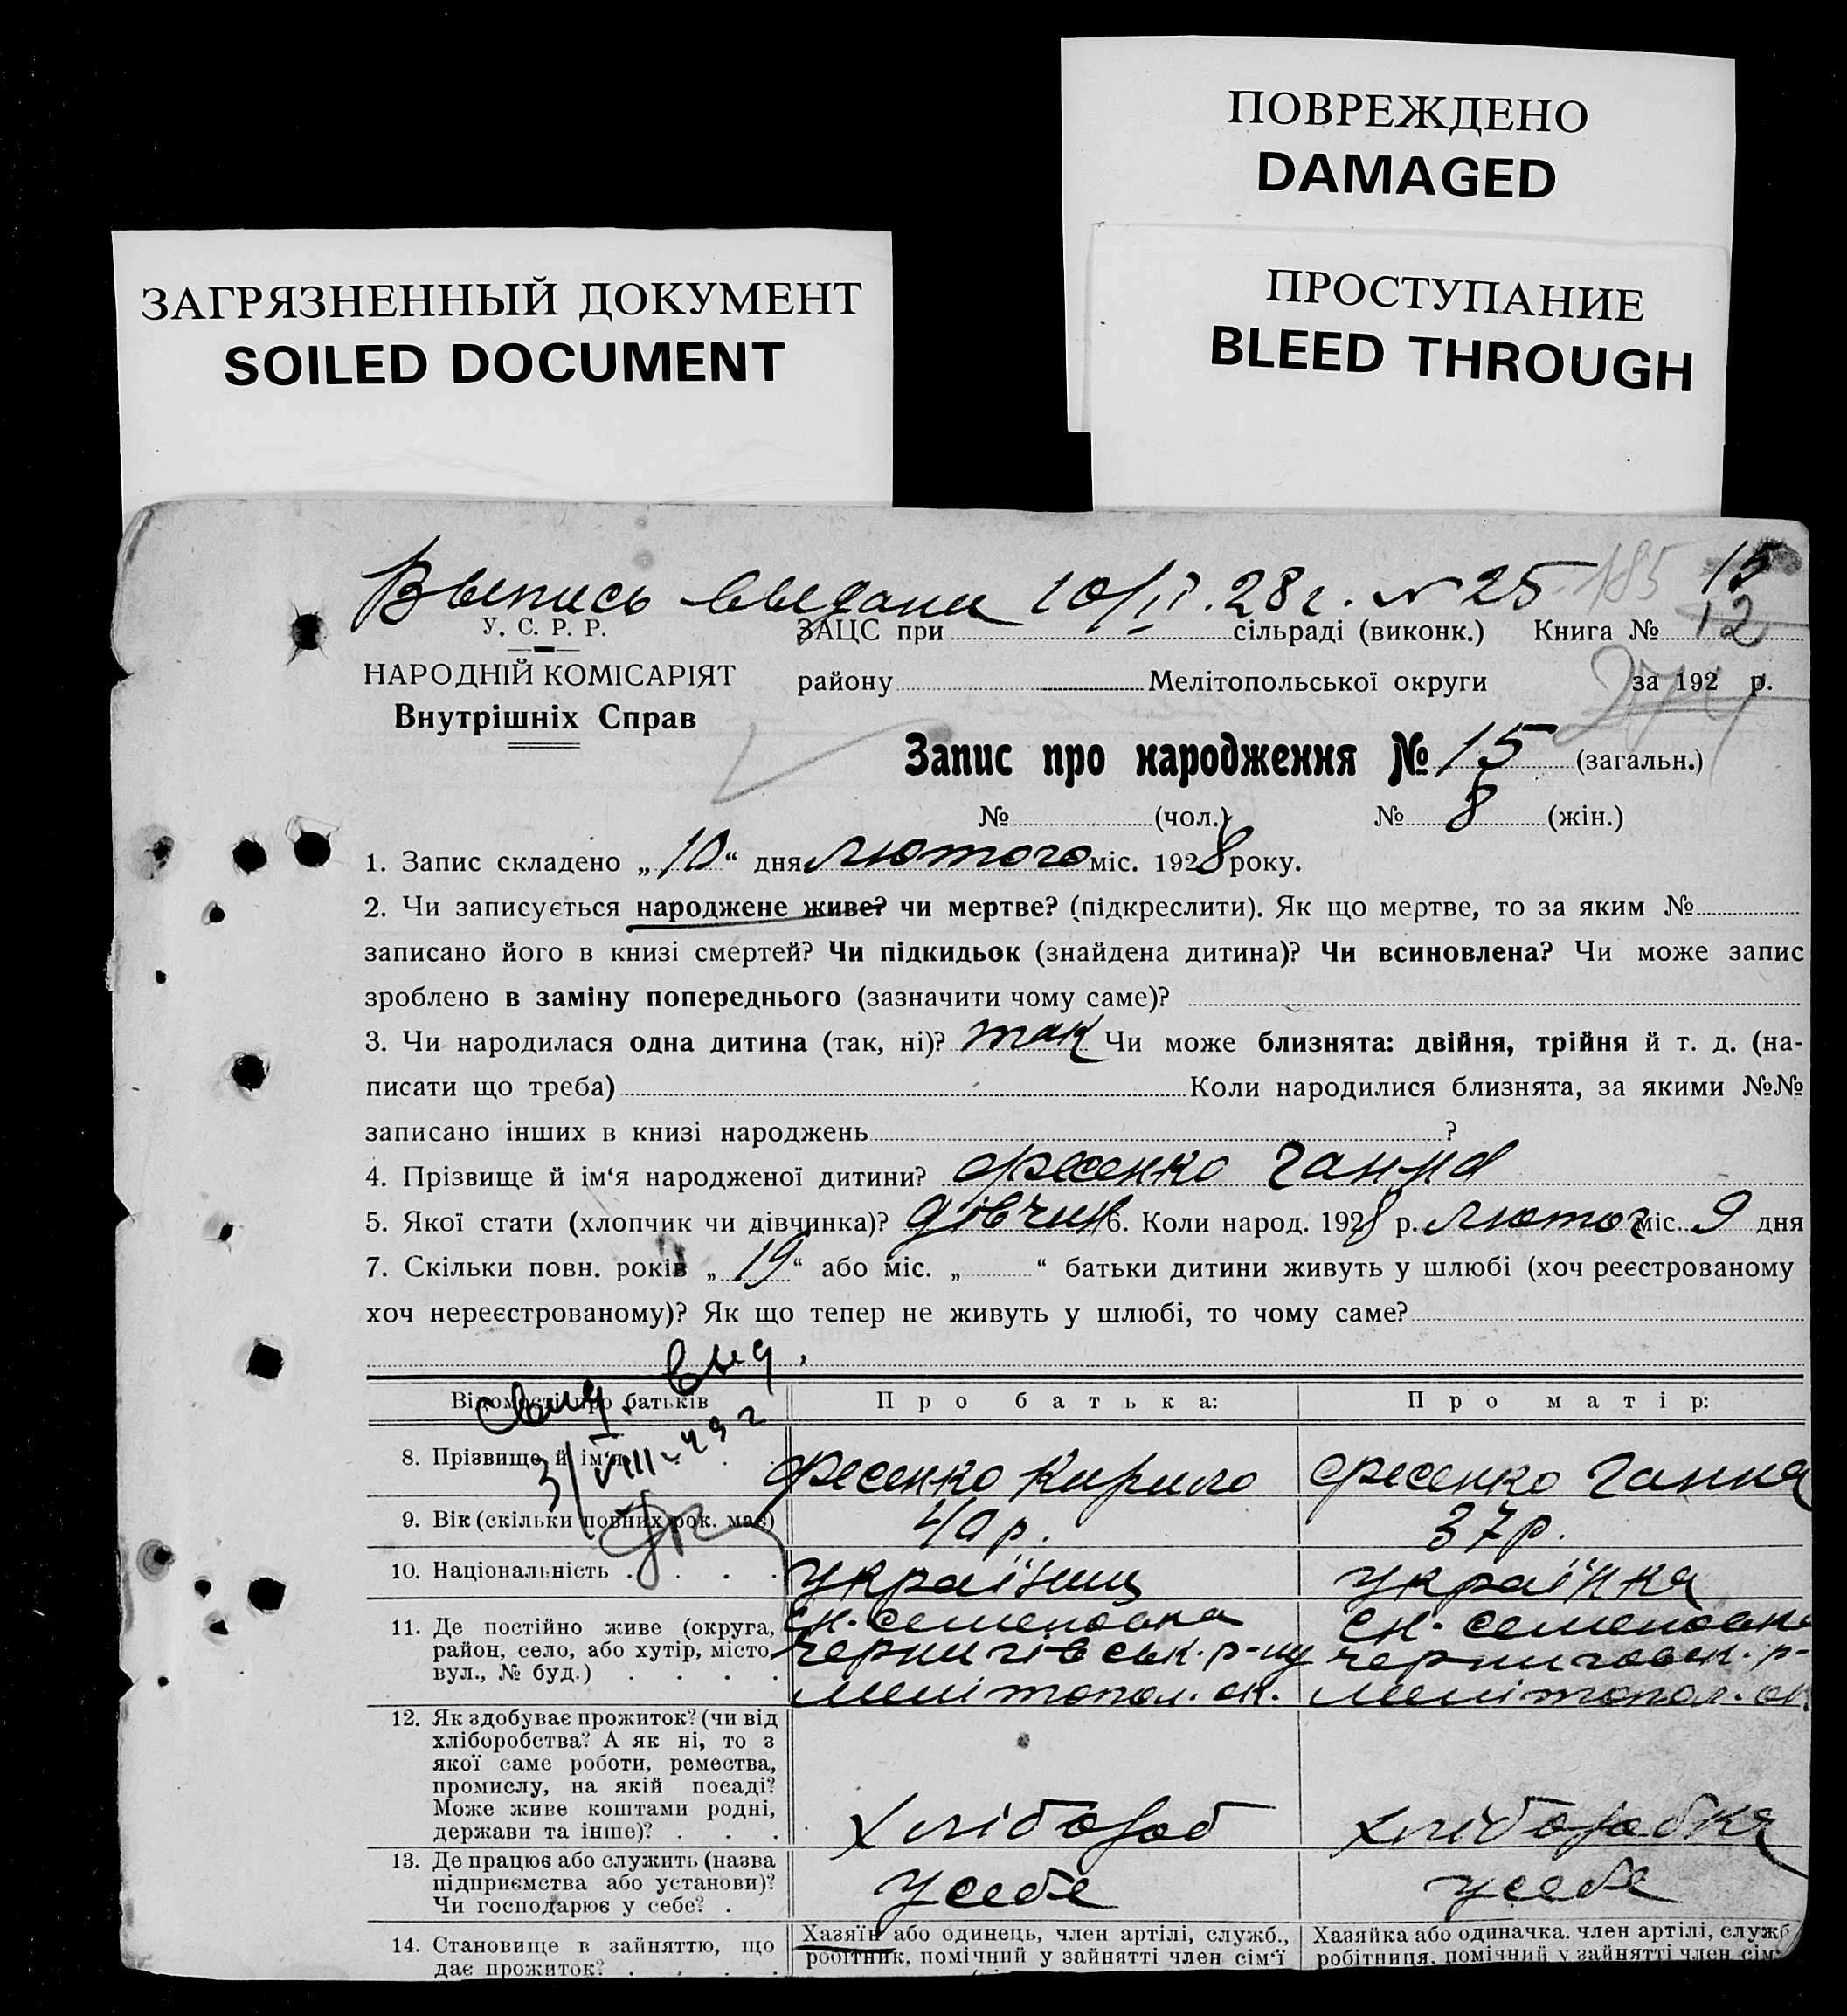 ПОВРЕЖДЕНО
DAMAGED
ПРОСТУПАНИЕ
BLEED THROUGH
ЗАГРЯЗНЕННЫЙ ДОКУМЕНТ
SOILED DOCUMENT
Выпись выдана 10/II.28г. № 25 185 15
У. С. Р. Р.
ЗАЦС при сільраді (виконк.) Книга № 12
НАРОДНІЙ КОМІСАРІЯТ
району Мелітопольської округи за 192 р.
Внутрішніх Справ
Запис про народження № 15 (загальн.)
№ (чол.) № 8 (жін.)
1. Запис складено „10“ дня лютого міс. 1928 року.
2. Чи записується народжене живе? чи мертве? (підкреслити). Як що мертве, то за яким №
записано його в книзі смертей? Чи підкидьок (знайдена дитина)? Чи всиновлена? Чи може запис
зроблено в заміну попереднього (зазначити чому саме)?
3. Чи народилася одна дитина (так, ні)? так Чи може близнята: двійня, трійня й т. д. (на-
писати що треба) Коли народилися близнята, за якими №№
записано інших в книзі народжень ?
4. Прізвище й ім‘я народженої дитини? Фесенко Ганна
5. Якої стати (хлопчик чи дівчинка)? дівчин 6. Коли народ. 1928 р. лютого міс. 9 дня
7. Скільки повн. років „19“ або міс. „ “ батьки дитини живуть у шлюбі (хоч реєстрованому
хоч нереєстрованому)? Як що тепер не живуть у шлюбі, то чому саме?
Свид. выд.
3/VIII-49г
Відомості про батьків
П р о б а т ь к а:
П р о м а т і р:
8. Прізвище й ім‘я . .
Фесенко Кирило
Фесенко Ганна
9. Вік (скільки повних рок. має)
40 р.
37 р.
10. Національність . . . .
українець
українка
11. Де постійно живе (округа,
район, село, або хутір, місто,
вул., № буд.) . . . .
сн. Семеновка
Чернигівськ. р-ну
Мелітопол. ок.
сн. Семеновка
Черниговск. р-
Мелітопол. ок
12. Як здобуває прожиток? (чи від
хліборобства? А як ні, то з
якої саме роботи, ремества,
промислу, на якій посаді?
Може живе коштами родні,
держави та інше)? . . .
Хлібороб
Хліборобка
13. Де працює або служить (назва
підприємства або установи)?
Чи господарює у себе? .
у себе
у себе
14. Становище в зайняттю, що
дає прожиток? . . . .
Хазяїн або одинець, член артілі, служб.,
робітник, помічний у зайнятті член сім‘ї
Хазяйка або одиначка, член артілі, служб
робітниця, помічний у зайнятті член сім‘